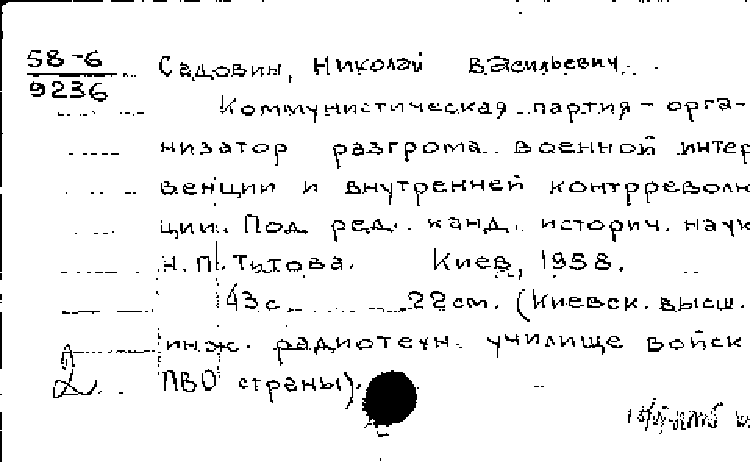 58-6
9236
Садовин, Николай Васильевич.
Коммунистическая партия - орга-
низатор разгрома военной интер
венции и внутренней контрреволю
ции. Под ред. канд. историч. наук
Н.П. Титова. Киев, 1958.
43 с. 22 см. (Киевск. высш.
инж. радиотехн. училище войск
ПВО страны).
2